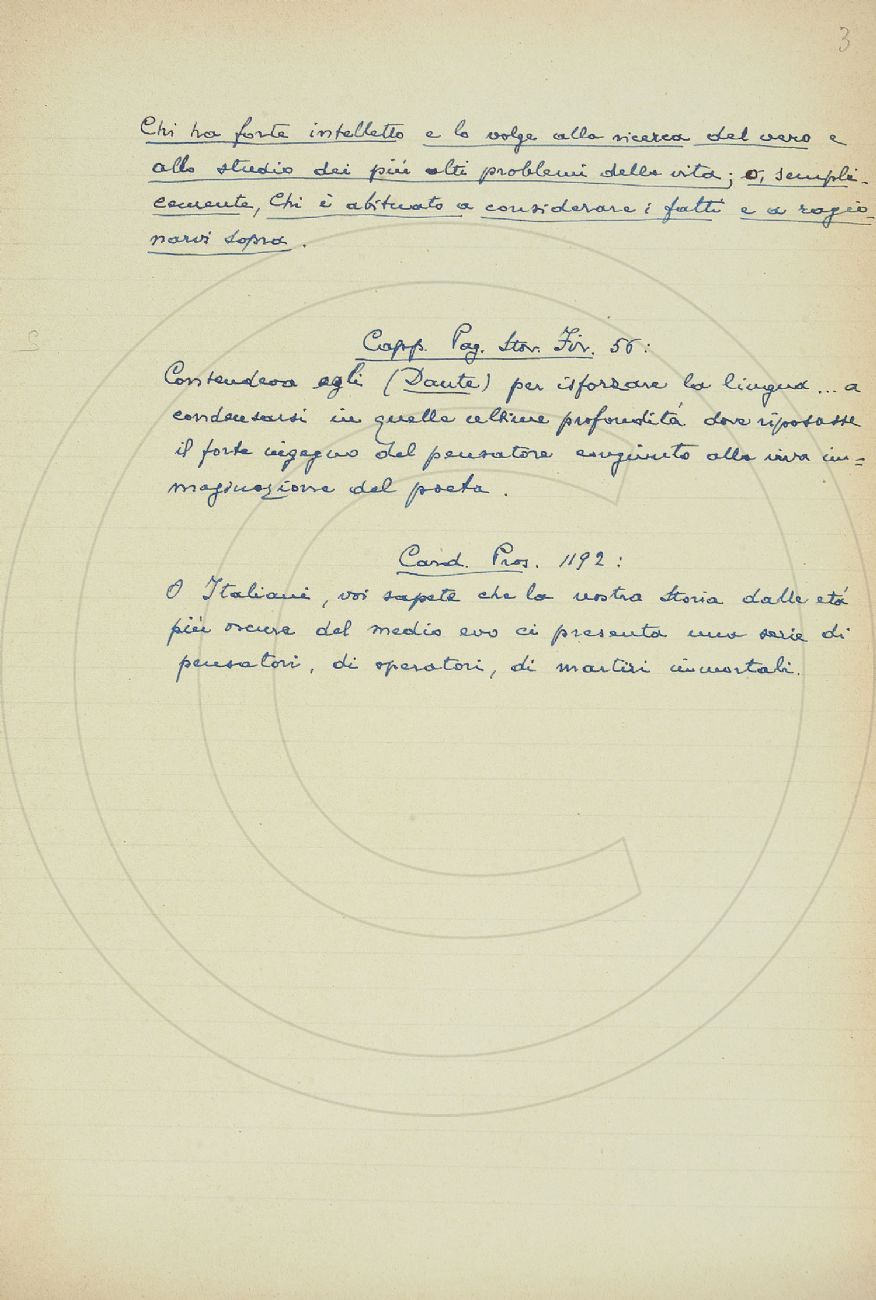 3
Chi ha forte intelletto e lo volge alla ricerca del vero e
allo studio dei più alti problemi della vita; o, sempli-
cemente, Chi è abituato a considerare i fatti e a ragio-
narvi sopra.
Capp. Pag. Stor. Fir. 56:
Contendeva egli (Dante) per isforzare la lingua ... a
condensarsi in quelle ultime profondità dove riposasse
il forte ingegno del pensatore congiunto alla viva im=
maginazione del poeta.
Card. Pros. 1192:
O Italiani, voi sapete che la nostra Storia dalle età
più oscure del medio evo ci presenta una serie di
pensatori, di operatori, di martiri immortali.